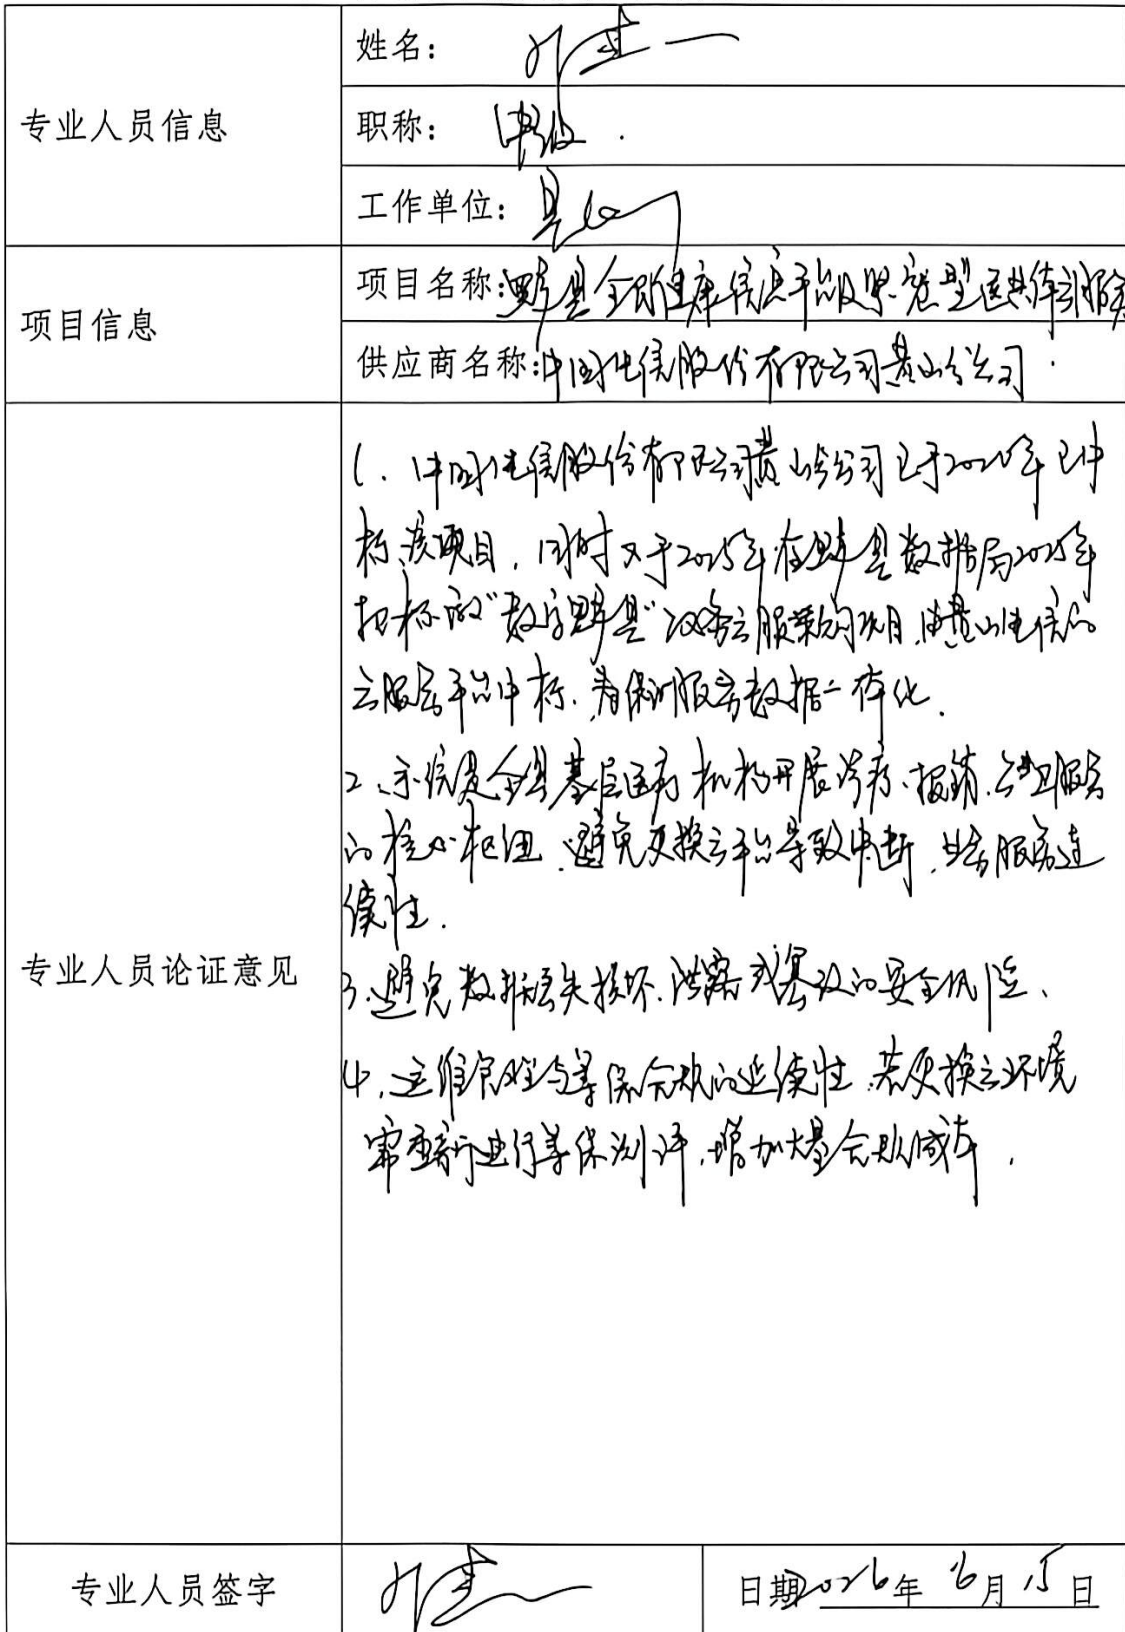 姓名：
专业人员信息
职称：中级．
工作单位：县
项目信息
项目名称：黟县全民健康信息平台及紧密型医共体云服务
供应商名称：中国电信股份有限公司黄山分公司．
专业人员论证意见
1．中国电信股份有限公司黄山分公司已于2020年已中
标该项目，同时又于2025年在黟县数据局2025年
招标的“数字黟县”政务云服务采购项目，由黄山电信的
云服务平台中标，为保证服务数据一体化．
2、系统是全县基层医疗机构开展诊疗、报销、公卫服务
的核心枢纽，避免更换云平台导致中断，业务服务连
续性．
3、避免数据丢失损坏、泄露或篡改的安全风险、
4、运维管理与等保合规的延续性，若更换云环境
需重新进行等保测评，增加大量合规成本．
专业人员签字
日期2026年6月15日